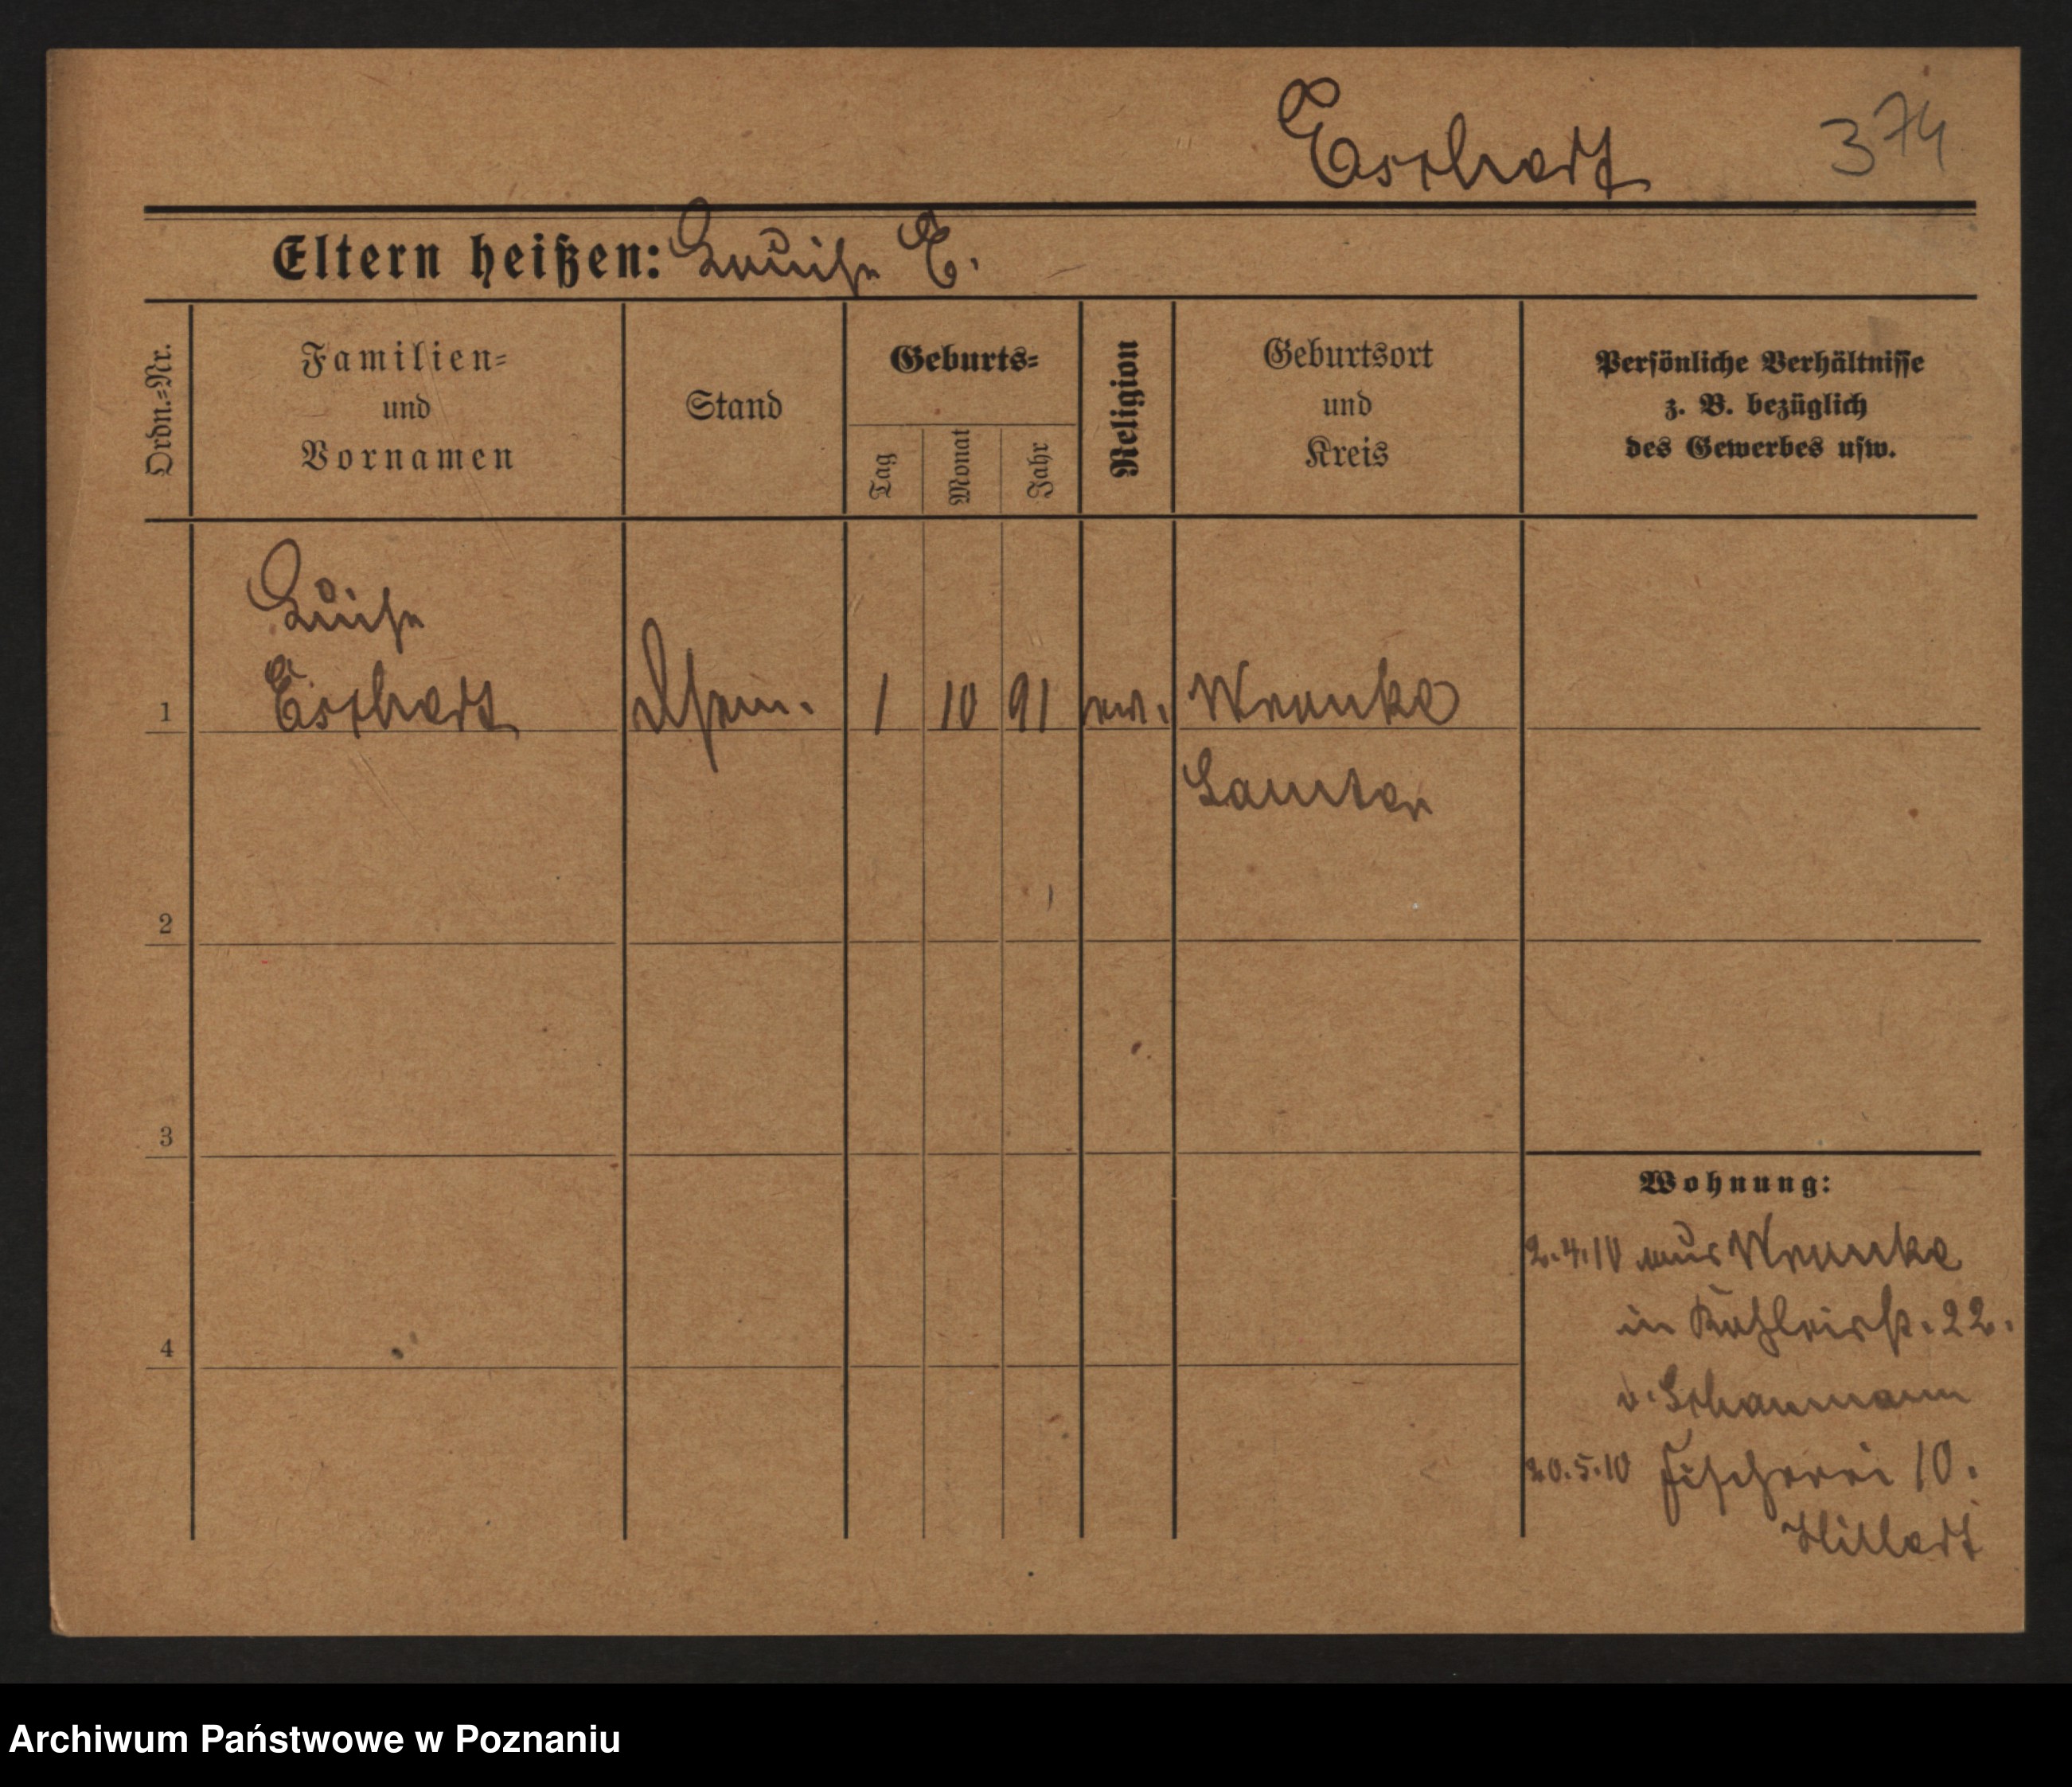 Eschert 374
Eltern heißen: Louise E.
Ordn.-Nr.
Familien-
und
Vornamen
Stand
Geburts-
Tag
Monat
Jahr
Religion
Geburtsort
und
Kreis
Persönliche Verhältnisse
z. B. bezüglich
des Gewerbes usw.
Luise
1 Eschert 1 10 91 ev. Wronke
Samter
2
3
4
Wohnung:
2.4.10 aus Wronke
in 22.
b. Schaumann
20.5.10 Fischerei 10.
Archiwum Państwowe w Poznaniu